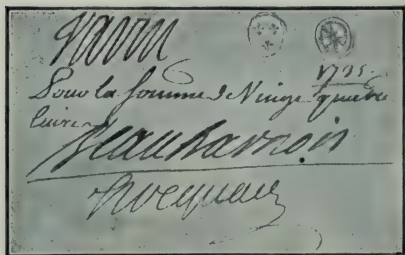 Varin
1735.
Pour la somme de Vingt quatre
livres
Beauharnois
Hocquart